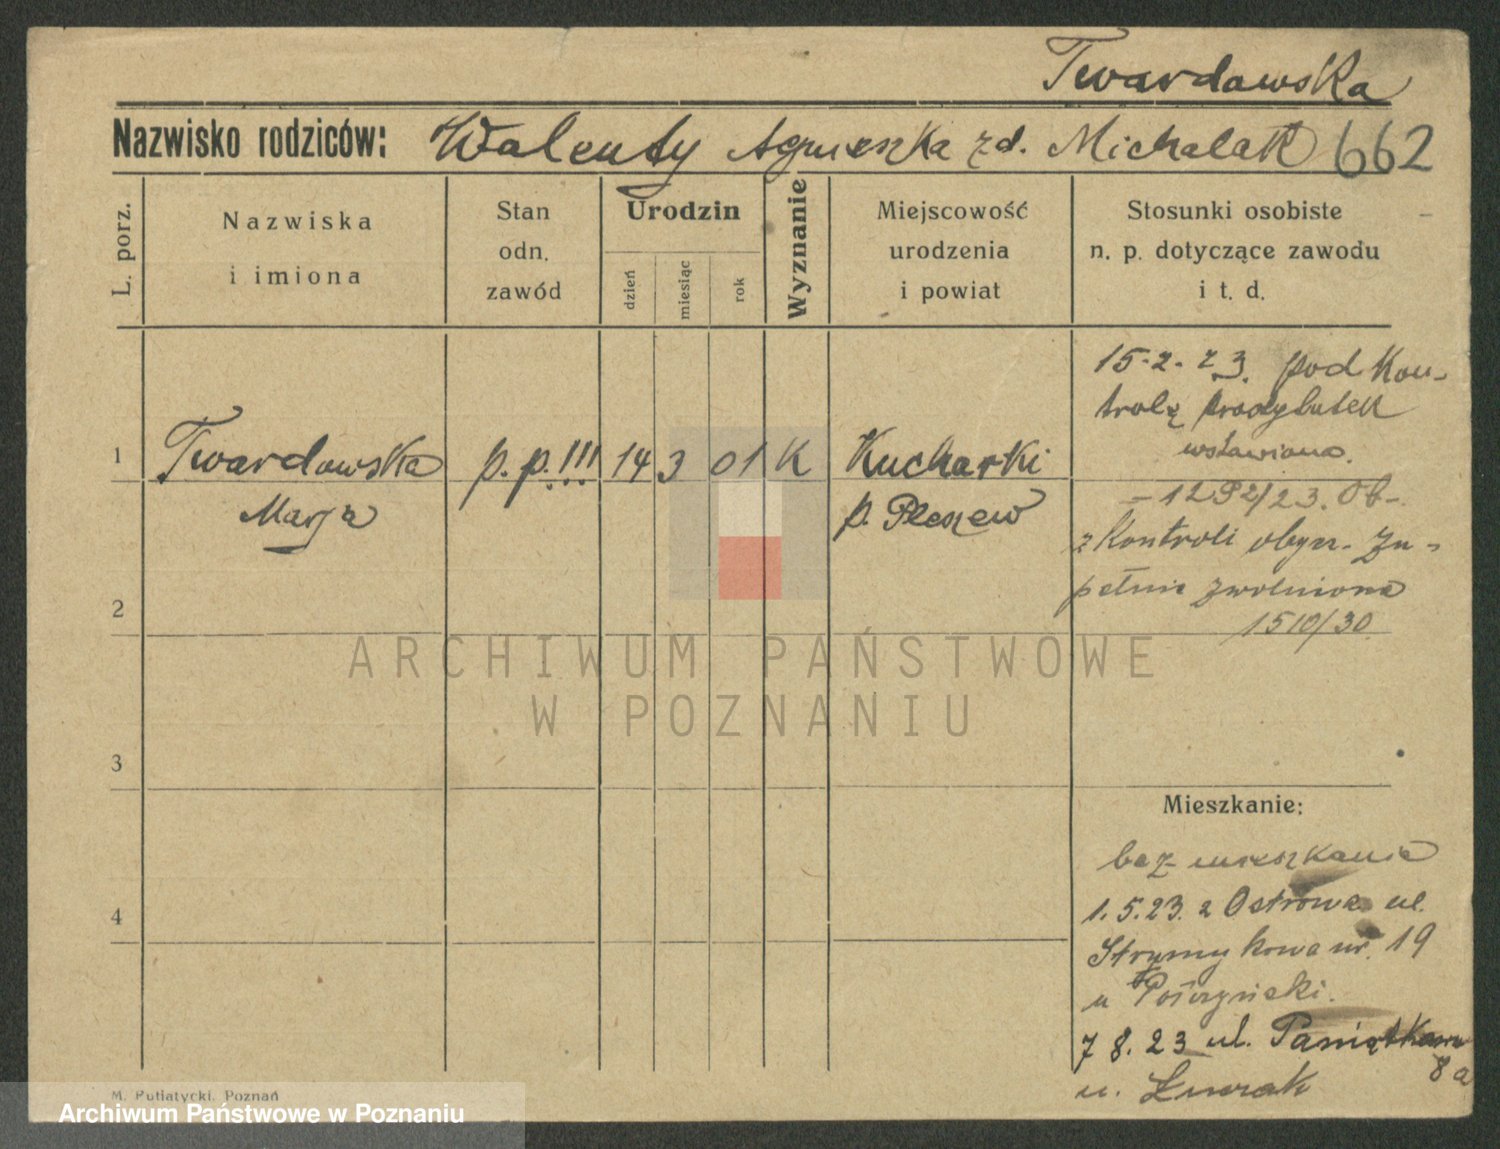 Twardowska
Nazwisko rodziców: Walenty Agnieszka zd. Michalak 662
L. porz.
Nazwiska
i imiona
Stan
odn.
zawód
Urodzin
dzień
miesiąc
rok
Wyznanie
Miejscowość
urodzenia
i powiat
Stosunki osobiste
n. p. dotyczące zawodu
i t. d.
1
Twardowska
Marja
p. p. !!!
14
3
01
K
Kucharki
p. Pleszew
15.2.23. pod Kon-
trolę prostytutek
wstawiona.
1292/23. Ob-
z Kontroli obycz. Zu-
pełnie zwolniona
1510/30
2
3
4
Mieszkanie:
bez mieszkania
1.5.23. z Ostrowa ul.
nr. 19
u
7 8. 23 ul. Pamiątkowa
8a
u.
M. Putiatycki, Poznań
ARCHIWUM PAŃSTWOWE
W POZNANIU
Archiwum Państwowe w Poznaniu